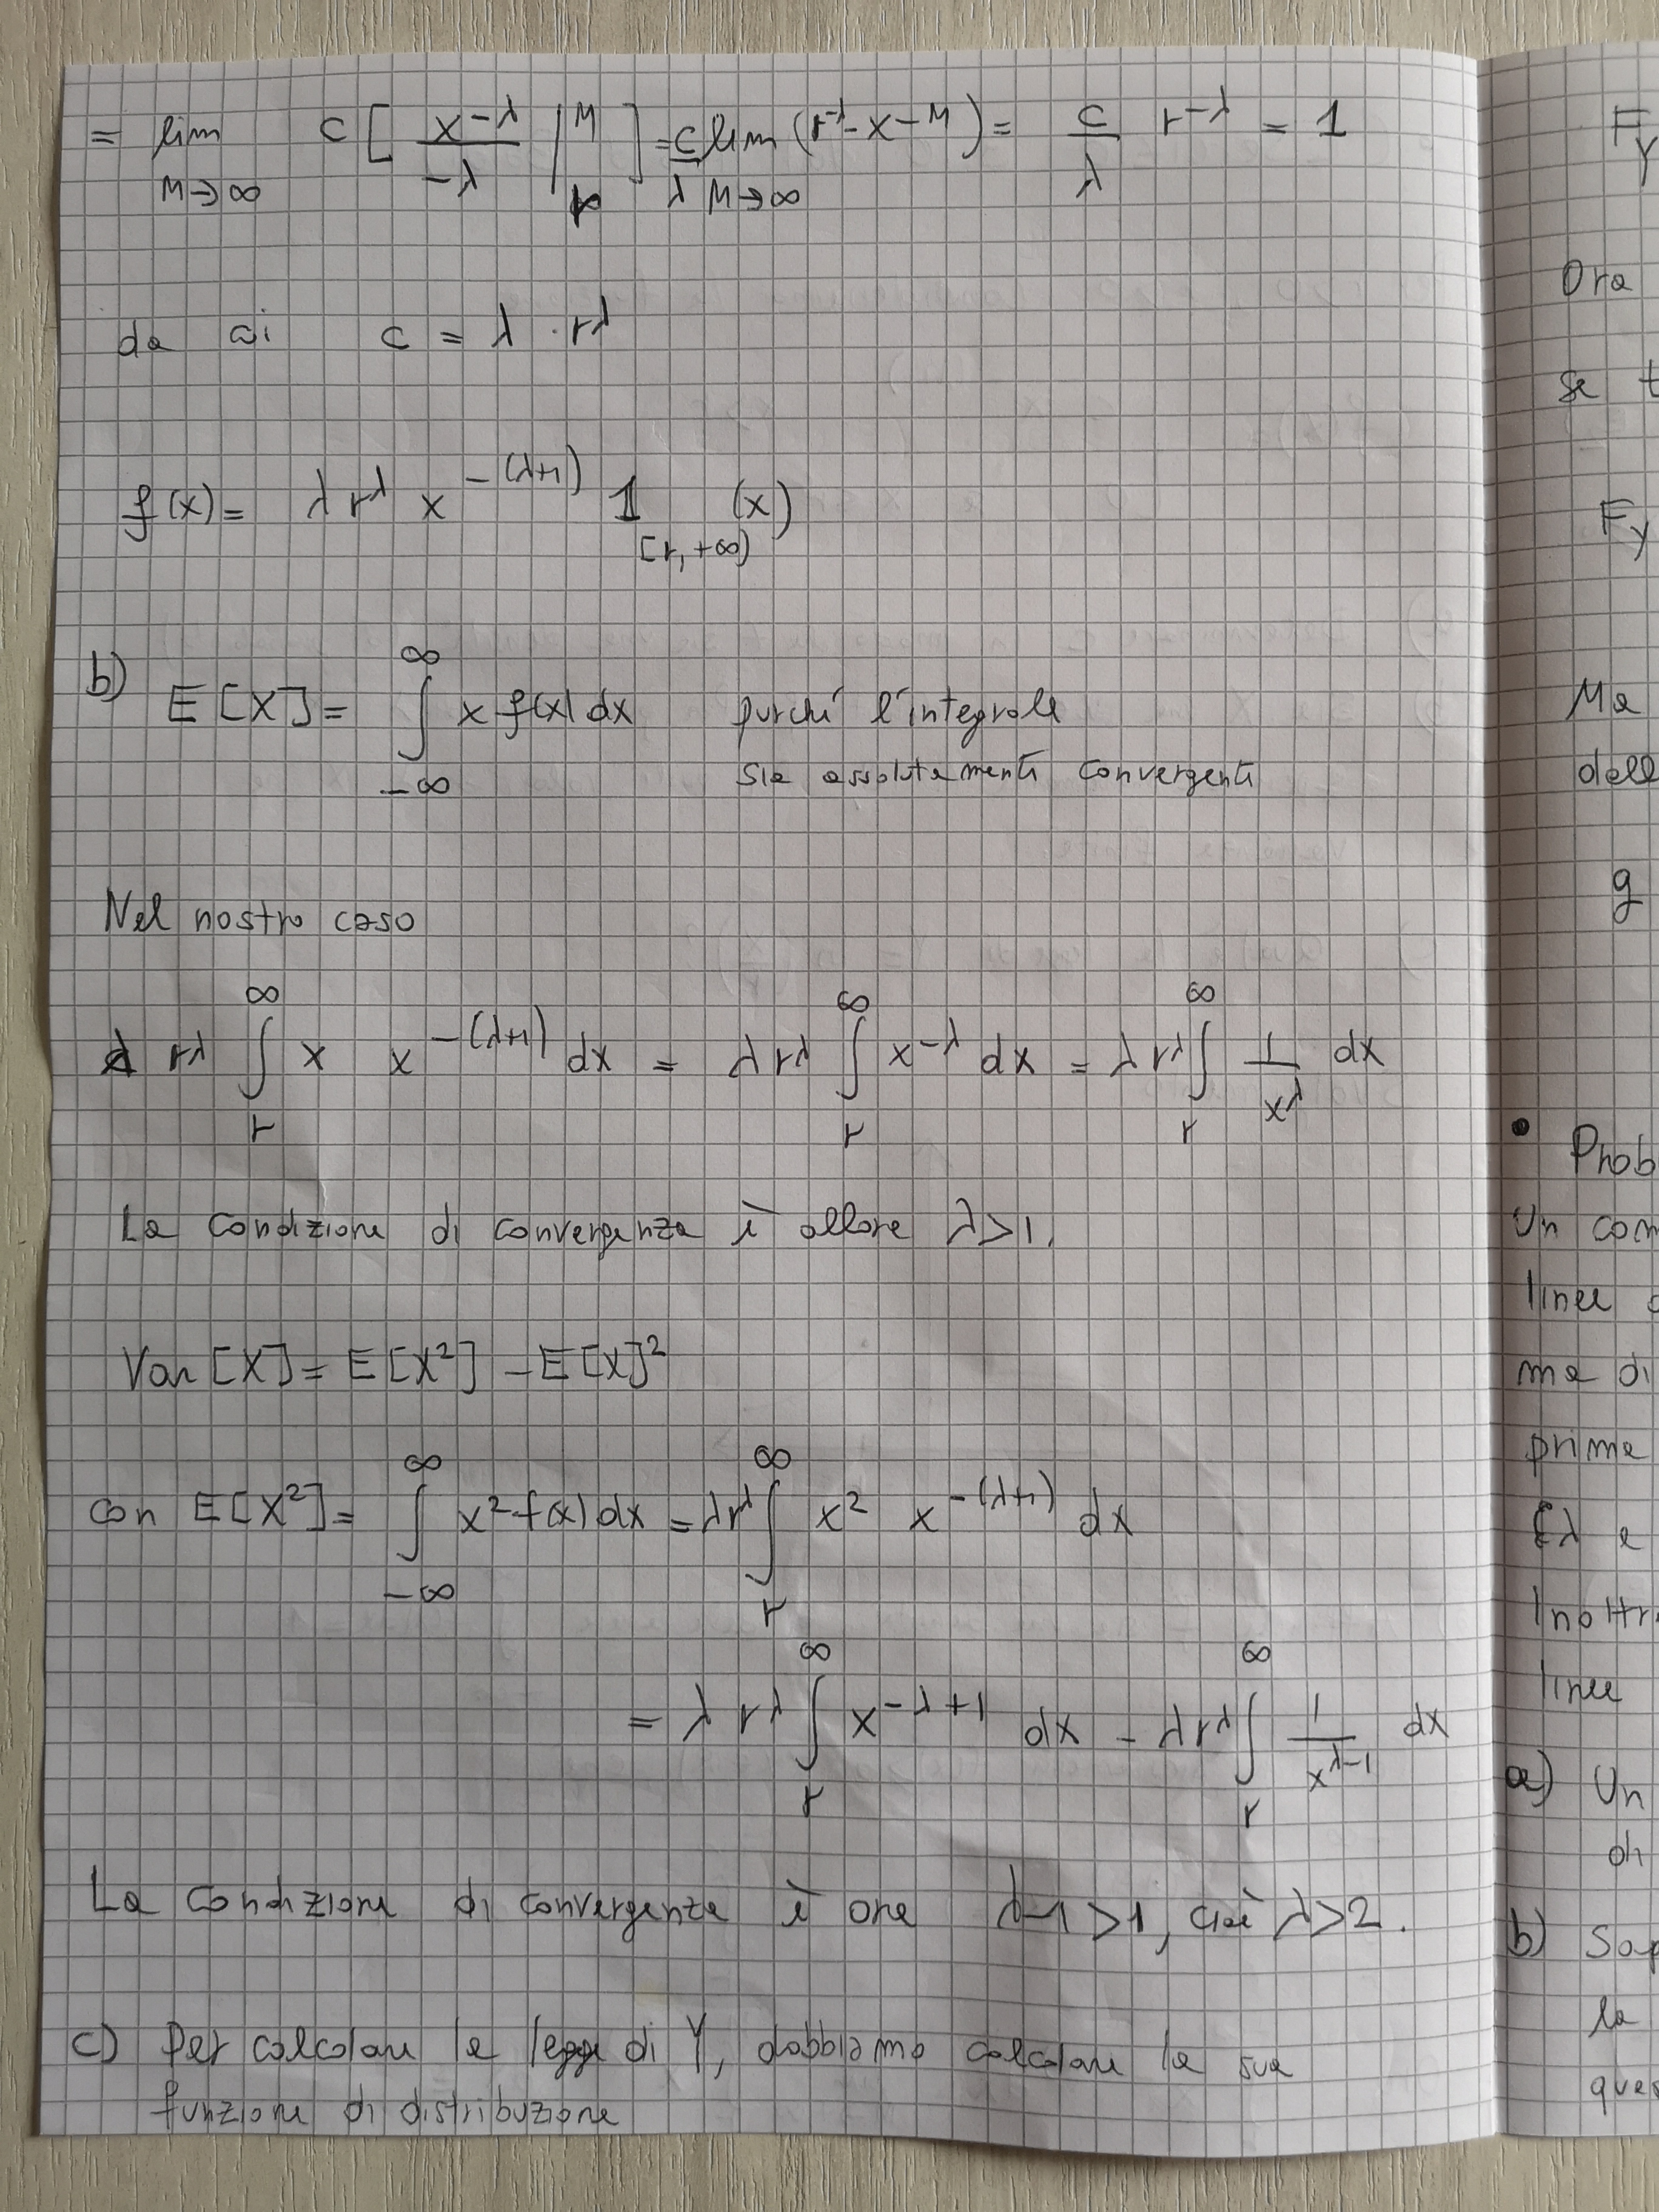 = lim_{M→∞} c [ x^{-λ}/-λ |_r^M ] = c/λ lim_{M→∞} (r^{-λ} - x^{-M}) = c/λ r^{-λ} = 1
da cui c = λ · r^λ
f(x) = λ r^λ x^{-(λ+1)} 1_{[r, +∞)} (x)
b) E[X] = ∫_{-∞}^{∞} x f(x) dx purché l'integrale
sia assolutamente convergente
Nel nostro caso
λ r^λ ∫_r^∞ x x^{-(λ+1)} dx = λ r^λ ∫_r^∞ x^{-λ} dx = λ r^λ ∫_r^∞ 1/x^λ dx
La condizione di convergenza è allora λ>1.
Var [X] = E[X²] - E[X]²
con E[X²] = ∫_{-∞}^{∞} x² f(x) dx = λ r^λ ∫_r^∞ x² x^{-(λ+1)} dx
= λ r^λ ∫_r^∞ x^{-λ+1} dx - λ r^λ ∫_r^∞ 1/x^{λ-1} dx
La condizione di convergenza è ora λ-1>1, cioè λ>2.
c) Per calcolare la legge di Y, dobbiamo calcolare la sua
funzione di distribuzione
F_Y
Ora
se t
F_Y
Ma
dell
g
• Prob
Un com
linee
ma di
prima
λ e
Inoltr
linee
a) Un
di
b) Sap
la
ques